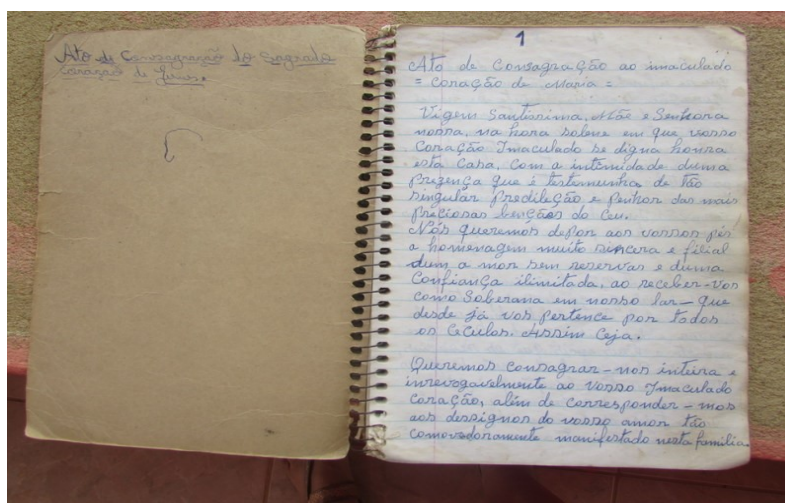 Ato de Consagração do Sagrado
Coração de Jesus.
1
Ato de Consagração ao imaculado
= Coração de Maria =
Vigem Santissima, Mãe e Senhora
nossa, na hora solene em que vosso
Coração Imaculado se digna honra
esta Casa, com a intemidade duma
Prezença que é testemunha de tão
singular Predileção e Penhor das mais
Preciosas bençãos do Ceu.
Nós queremos depor aos vossos pés
a homenagem muito sincera e filial
dum a mor sem reservas e duma
Confiança ilimitada, ao receber-Vos
como Soberana em nosso lar - que
desde já vos pertence por todos
os Ceculos. Assim Ceja.
Queremos consagrar-nos inteira e
inrevogavelmente ao Vosso Imaculado
Coração, além de corresponder-mos
aos dessignos do vosso amor tão
comovedoramente manifestado nesta familia.